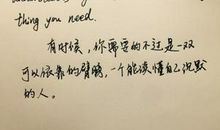 thing you need.
有时候，你需要的不过是一双
可以依靠的臂膀，一个能读懂自己沉默
的人。